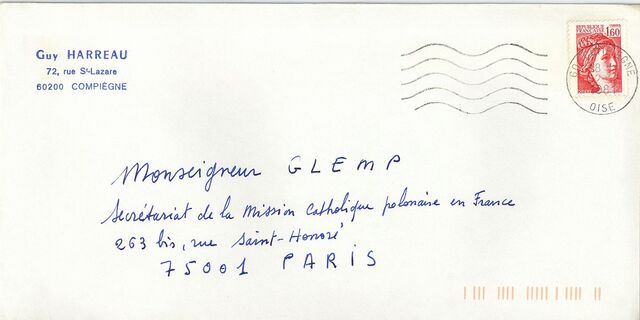 Guy HARREAU
72, rue St-Lazare
60200 COMPIÈGNE
RÉPUBLIQUE
FRANÇAISE
1,60
OISE
Monseigneur GLEMP
Secrétariat de la Mission Catholique polonaise en France
263 bis, rue Saint-Honoré
75001 PARIS